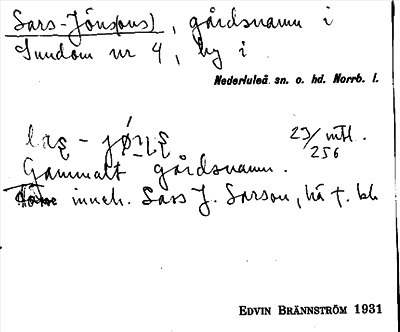 Lars-Jöns(ons), gårdsnamn i
Sundom nr 4, by i
Nederluleå sn. o. hd. Norrb. l.
23/256 mtl.
Gammalt gårdsnamn.
inneh. Lars J. Larson, hä †. bl
EDVIN BRÄNNSTRÖM 1931